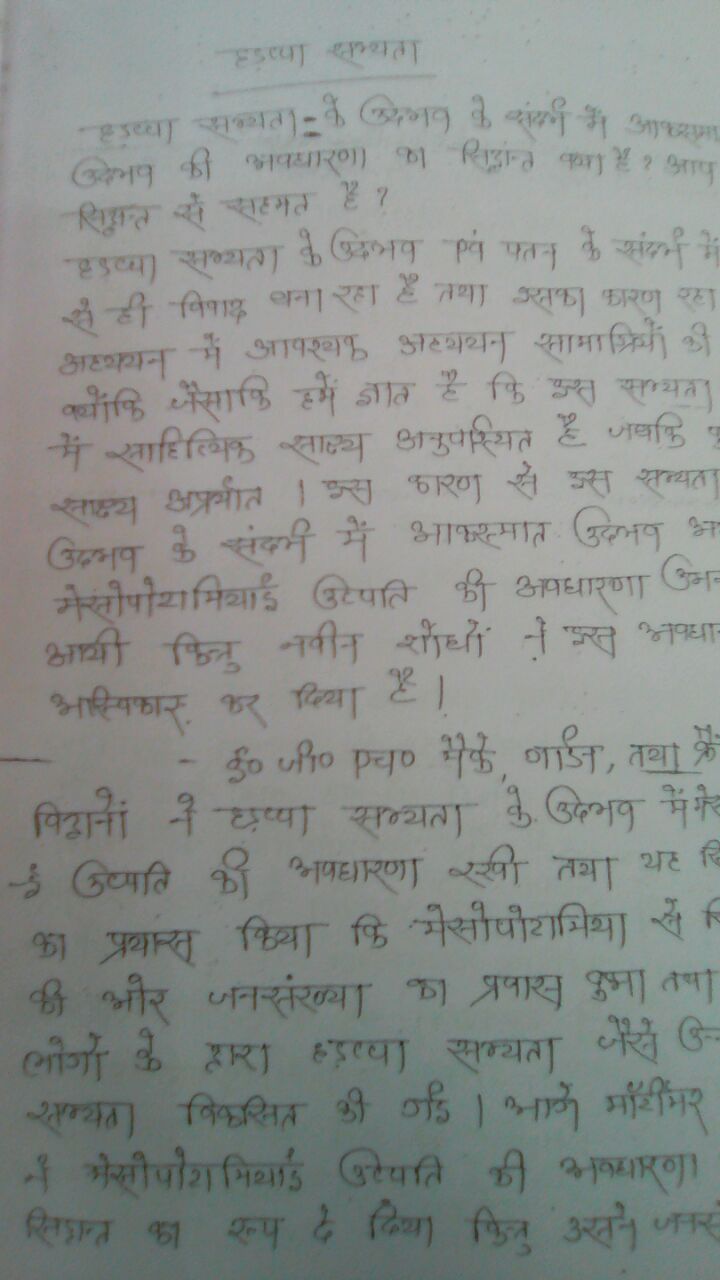 हड़प्पा सभ्यता
हड़प्पा सभ्यता = के उदभव के संदर्भ में
उदभव की अवधारणा का सिद्वान्त क्या है ? आप
सिद्वान्त से सहमत है ?
हड़प्पा सभ्यता के उदभव एवं पतन के संदर्भ में
से ही विवाद बना रहा है तथा इसका कारण रहा
अध्ययन में आवश्यक अध्ययन सामाग्रियों की
क्योंकि जैसाकि हमें ज्ञात है कि इस सभ्यता
में साहित्यिक साक्ष्य अनुपस्थित है जबकि
साक्ष्य अप्रर्याप्त । इस कारण से इस सभ्यता
उदभव के संदर्भ में आकस्मात उदभव
मेसोपोटामियाई उत्पति की अवधारणा
आयी किन्तु नवीन शोधों ने इस
अस्विकार कर दिया है ।
- ई० जी० एच० मैके, गार्डन, तथा
विद्वानों ने हड़प्पा सभ्यता के उदभव में
-ई उत्पति की अवधारणा रखी तथा यह
का प्रयास किया कि मेसोपोटामिया से
की ओर जनसंख्या का प्रवास हुआ तथा
लोगों के द्वारा हड़प्पा सभ्यता जैसे
सभ्यता विकसित की गई । आगे मॉर्टीमर
ने मेसोपोटामियाई उत्पति की अवधारणा
सिद्वान्त का रूप दे दिया किन्तु उसने